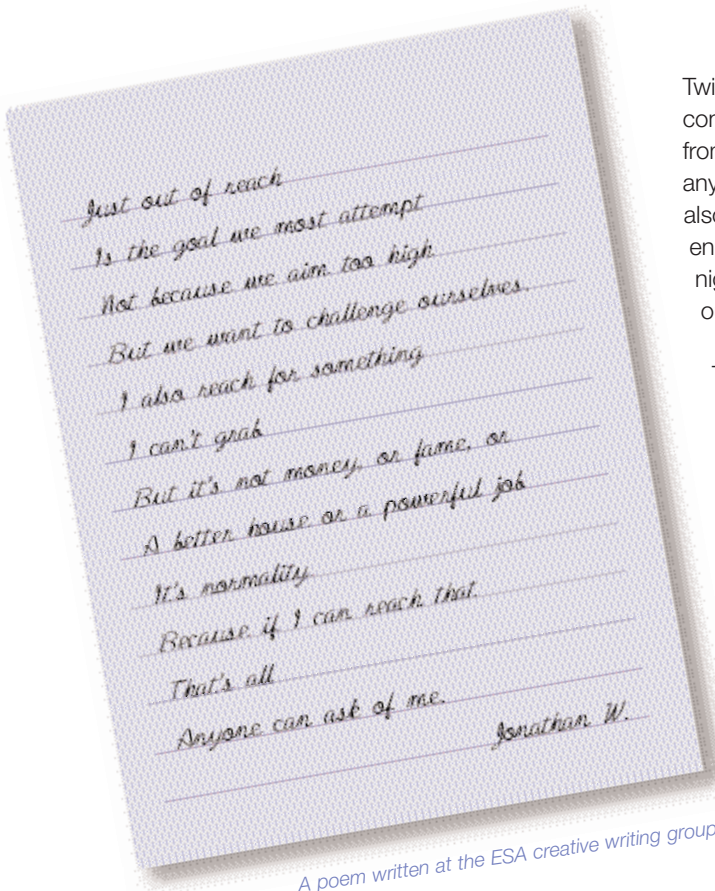 Just out of reach
Is the goal we most attempt
Not because we aim too high
But we want to challenge ourselves.
I also reach for something
I can't grab
But it's not money, or fame, or
A better house or a powerful job
It's normality
Because if I can reach that
That's all
Anyone can ask of me.
Jonathan W.
A poem written at the ESA creative writing group